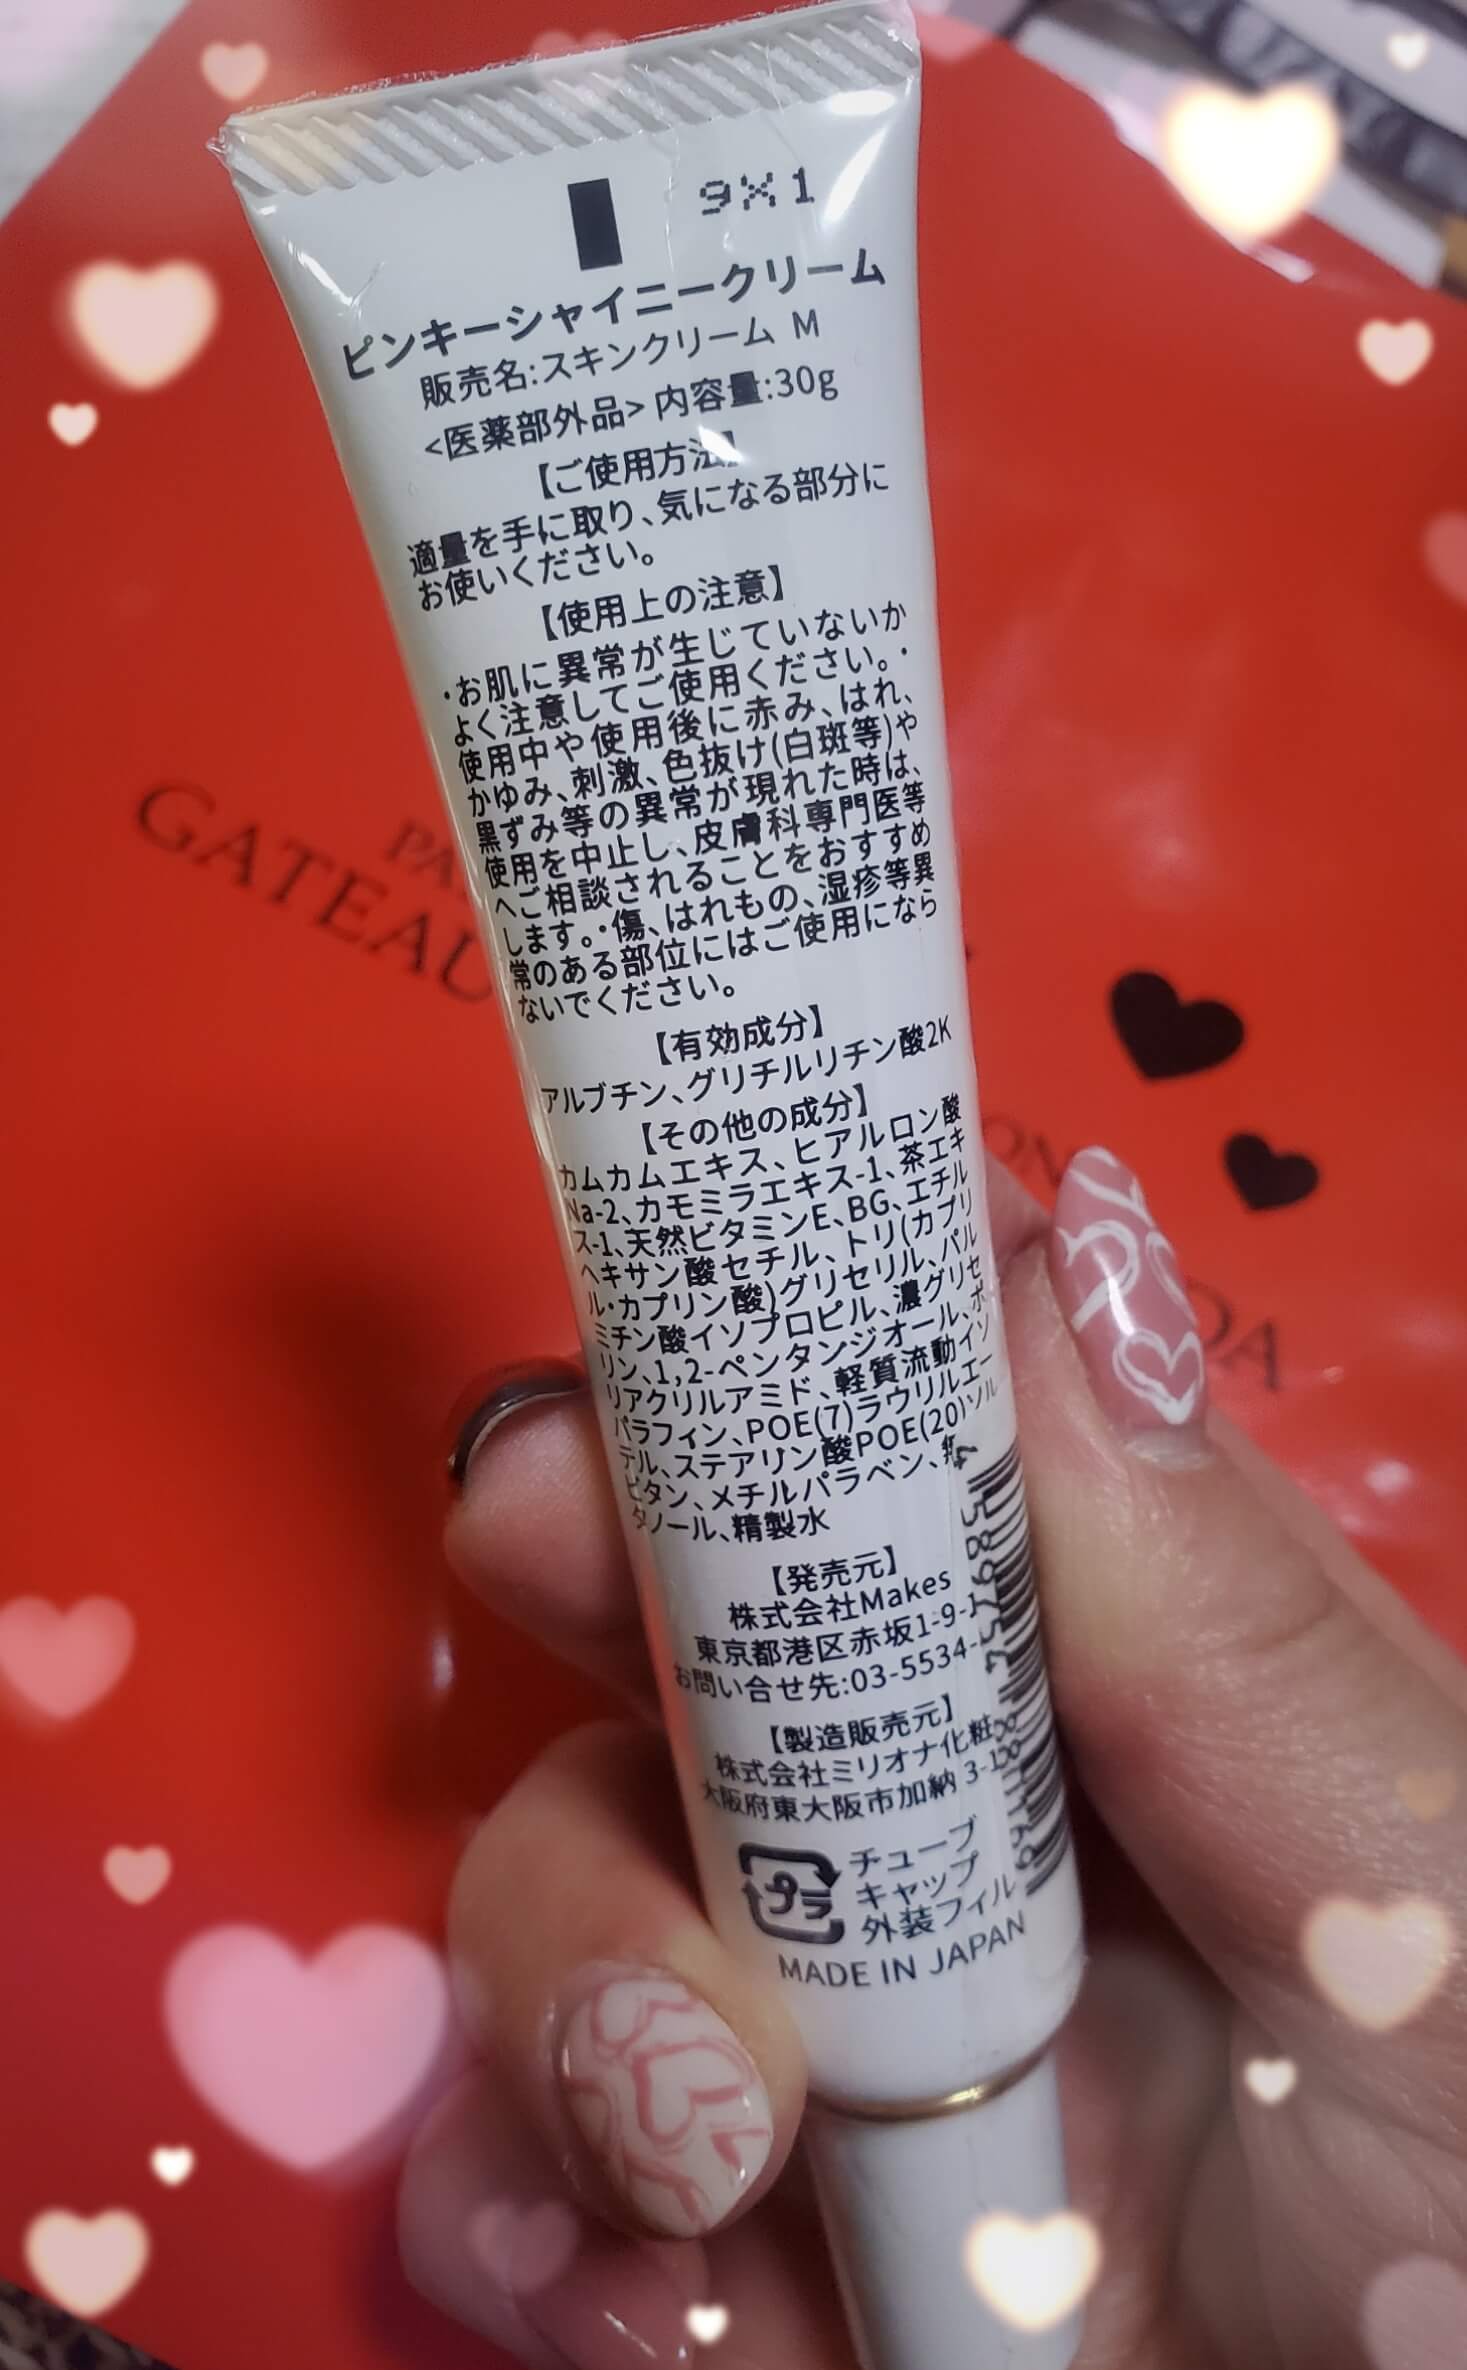 9X1
ピンキーシャイニークリーム
販売名:スキンクリーム M
<医薬部外品> 内容量:30g
【ご使用方法】
適量を手に取り、気になる部分に
お使いください。
【使用上の注意】
・お肌に異常が生じていないか
よく注意してご使用ください。・
使用中や使用後に赤み、はれ、
かゆみ、刺激、色抜け(白斑等)や
黒ずみ等の異常が現れた時は、
使用を中止し、皮膚科専門医等
へご相談されることをおすすめ
します。・傷、はれもの、湿疹等異
常のある部位にはご使用になら
ないでください。
【有効成分】
アルブチン、グリチルリチン酸2K
【その他の成分】
カムカムエキス、ヒアルロン酸
Na-2、カモミラエキス-1、茶エキ
ス-1、天然ビタミンE、BG、エチル
ヘキサン酸セチル、トリ(カプリ
ル・カプリン酸)グリセリル、パル
ミチン酸イソプロピル、濃グリセ
リン、1,2-ペンタンジオール、ポ
リアクリルアミド、軽質流動イソ
パラフィン、POE(7)ラウリルエー
テル、ステアリン酸POE(20)ソル
ビタン、メチルパラベン、
タノール、精製水
【発売元】
株式会社Makes
東京都港区赤坂1-9-1
お問い合せ先:03-5534-
【製造販売元】
株式会社ミリオナ化粧
大阪府東大阪市加納 3-1
プラ
チューブ
キャップ
外装フィル
MADE IN JAPAN
GATEAU